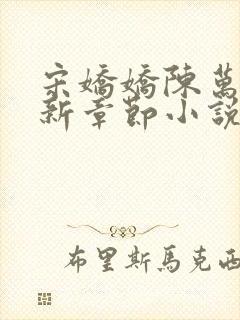 宋嬌嬌陳萬
新章節小說
布里斯馬克西